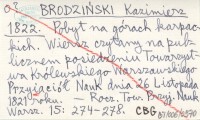 BRODZIŃSKI Kazimierz
1822. Pobyt na górach karpac-
kich. Wiersz czytany na pub-
licznem posiedzeniu Towarzyst-
wa Królewskiego Warszawskiego
Przyjaciół Nauk dnia 26 Listopada
1821 roku. — Rocz. Tow. Przyj. Nauk
Warsz. 15: 274-278. CBG